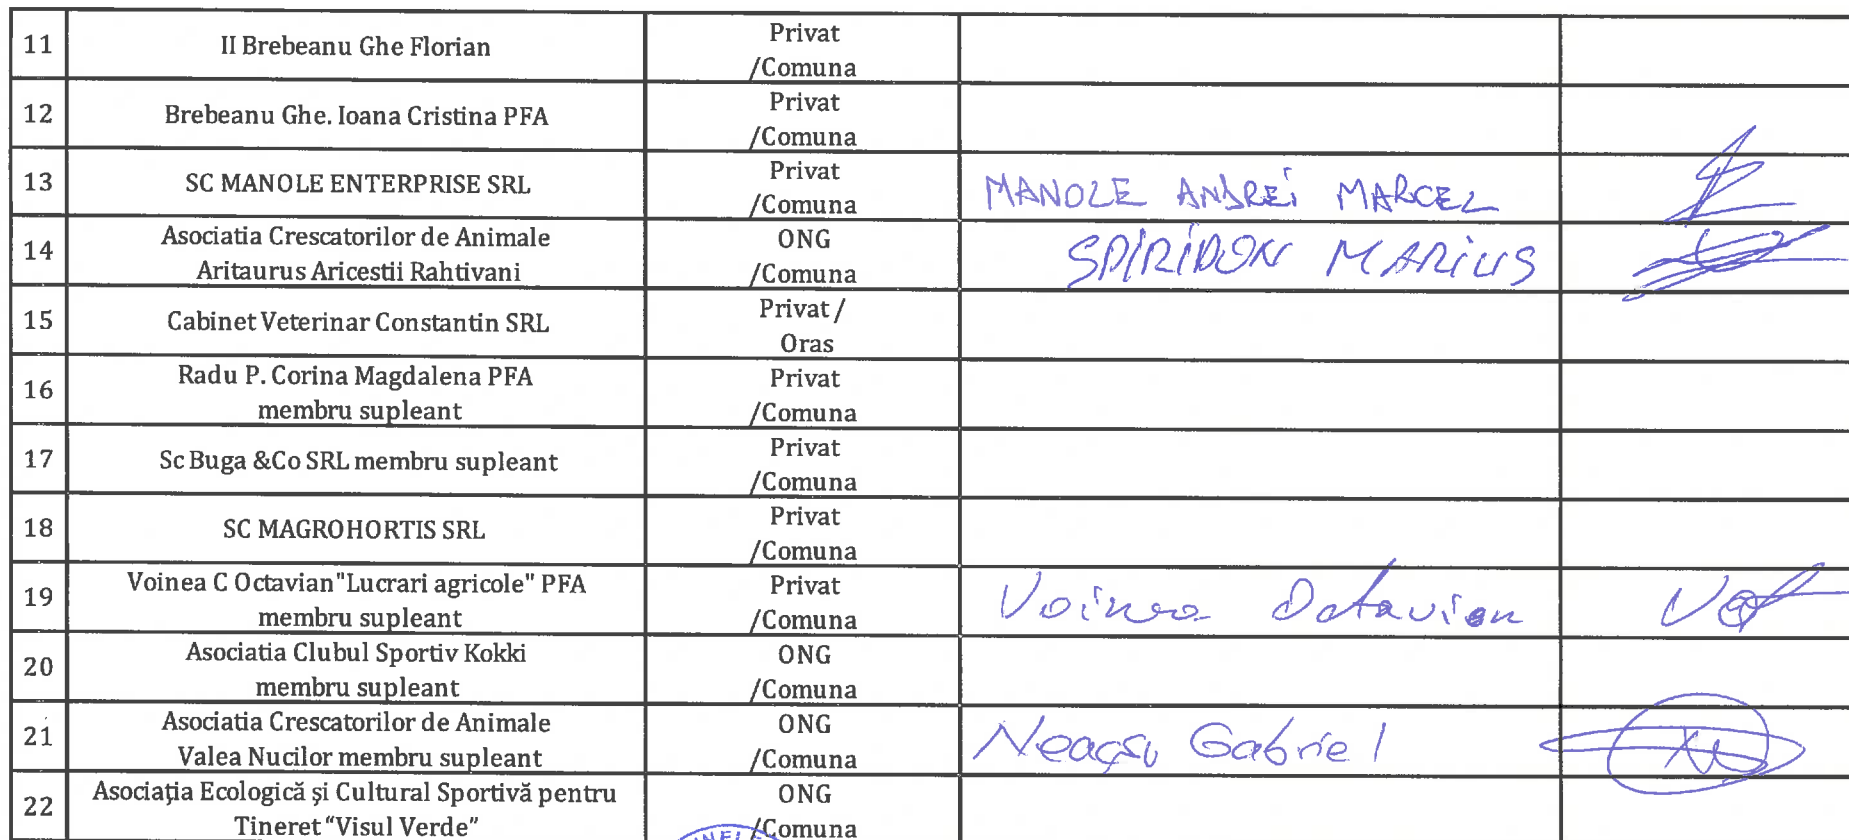 11 II Brebeanu Ghe Florian Privat
/Comuna
12 Brebeanu Ghe. Ioana Cristina PFA Privat
/Comuna
13 SC MANOLE ENTERPRISE SRL Privat
/Comuna MANOLE ANDREI MARCEL
14 Asociatia Crescatorilor de Animale ONG
Aritaurus Aricestii Rahtivani /Comuna SPIRIDON MARIUS
15 Cabinet Veterinar Constantin SRL Privat /
Oras
16 Radu P. Corina Magdalena PFA Privat
membru supleant /Comuna
17 Sc Buga &Co SRL membru supleant Privat
/Comuna
18 SC MAGROHORTIS SRL Privat
/Comuna
19 Voinea C Octavian"Lucrari agricole" PFA Privat
membru supleant /Comuna Voinea Octavian
20 Asociatia Clubul Sportiv Kokki ONG
membru supleant /Comuna
21 Asociatia Crescatorilor de Animale ONG
Valea Nucilor membru supleant /Comuna Neacșu Gabriel
22 Asociaţia Ecologică şi Cultural Sportivă pentru ONG
Tineret "Visul Verde" /Comuna